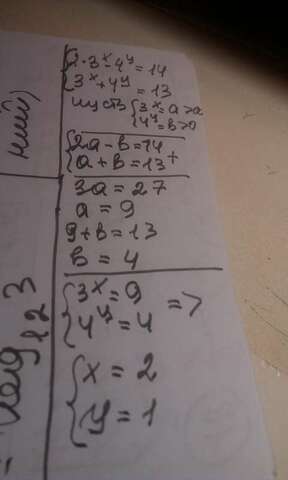 {2·3ˣ-4ʸ=14
3ˣ+4ʸ=13
пусть {3ˣ=a>0
4ʸ=b>0
{2a-b=14
a+b=13 +
3a=27
a=9
9+b=13
b=4
{3ˣ=9
4ʸ=4 =>
{x=2
y=1
ний)
log₁₂3